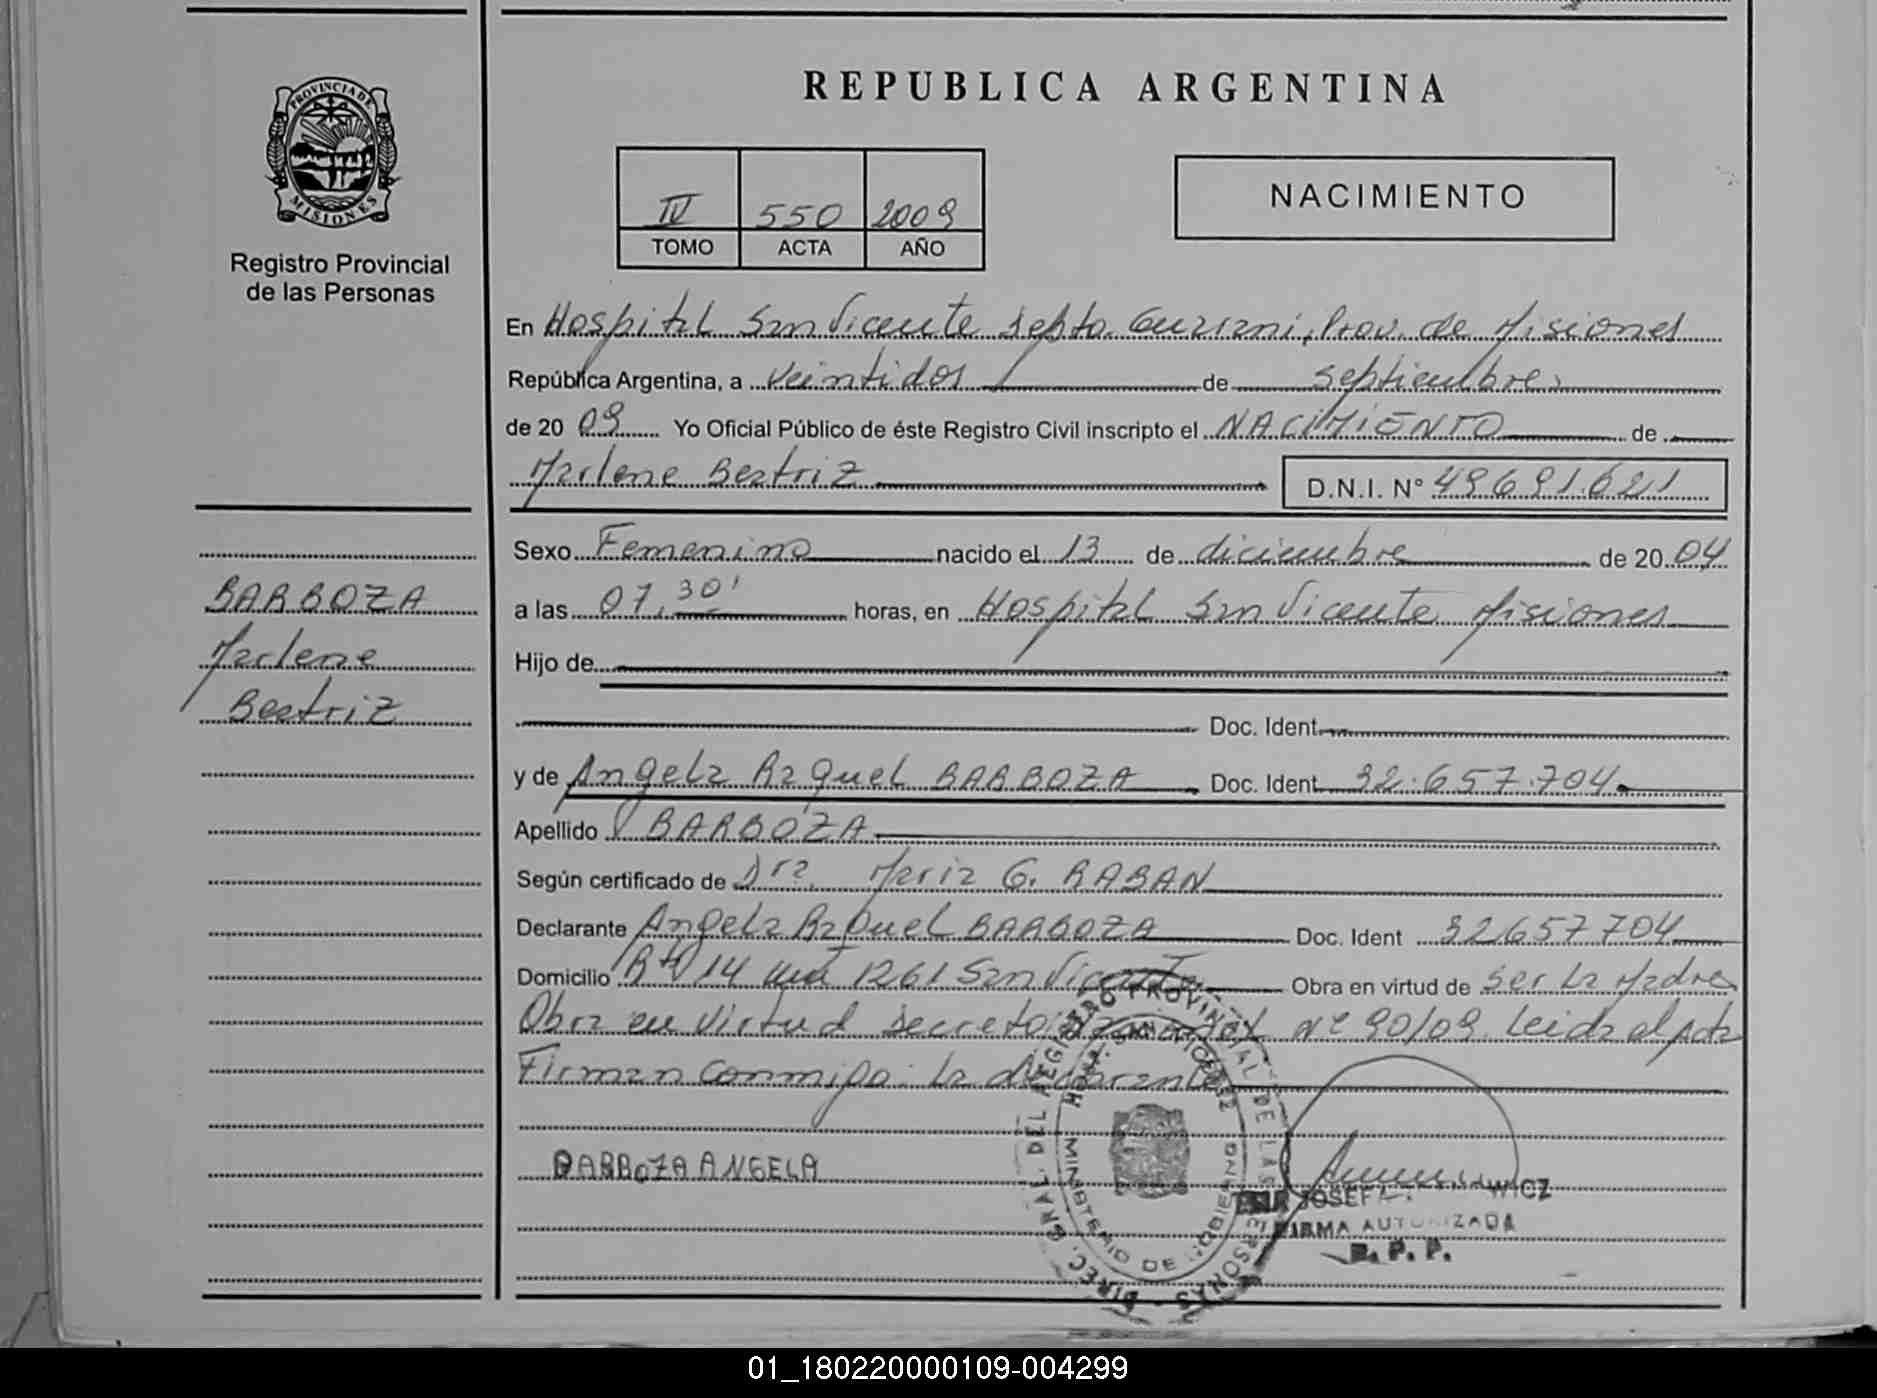 PROVINCIA DE
MISIONES
Registro Provincial
de las Personas
REPUBLICA ARGENTINA
IV 550 2009
TOMO ACTA AÑO
NACIMIENTO
En Hospital San Vicente Depto. Guarani, Prov. de Misiones
República Argentina, a veintidos de septiembre
de 20 09 Yo Oficial Público de éste Registro Civil inscripto el NACIMIENTO de
Marlene Beatriz D.N.I. N° 49.691.621
Sexo Femenino nacido el 13 de diciembre de 20 04
BARBOZA
Marlene
Beatriz
a las 07,30' horas, en Hospital San Vicente Misiones
Hijo de
Doc. Ident.
y de Angela Raquel BARBOZA Doc. Ident. 32.657.704
Apellido BARBOZA
Según certificado de Dra. Maria G. RABAN
Declarante Angela Raquel BARBOZA Doc. Ident 32657704
Domicilio Rta 14 km 1261 San Vicente Obra en virtud de ser la Madre
Obra en virtud decreto Nº 90/09. Leida el Acta
Firman conmigo: la declarante
BARBOZA ANGELA
DIREC. GRAL. DEL REGISTRO PROVINCIAL DE LAS PERSONAS
MINISTERIO DE GOBIERNO
JOSEFA
FIRMA AUTORIZADA
R. P. P.
01_180220000109-004299